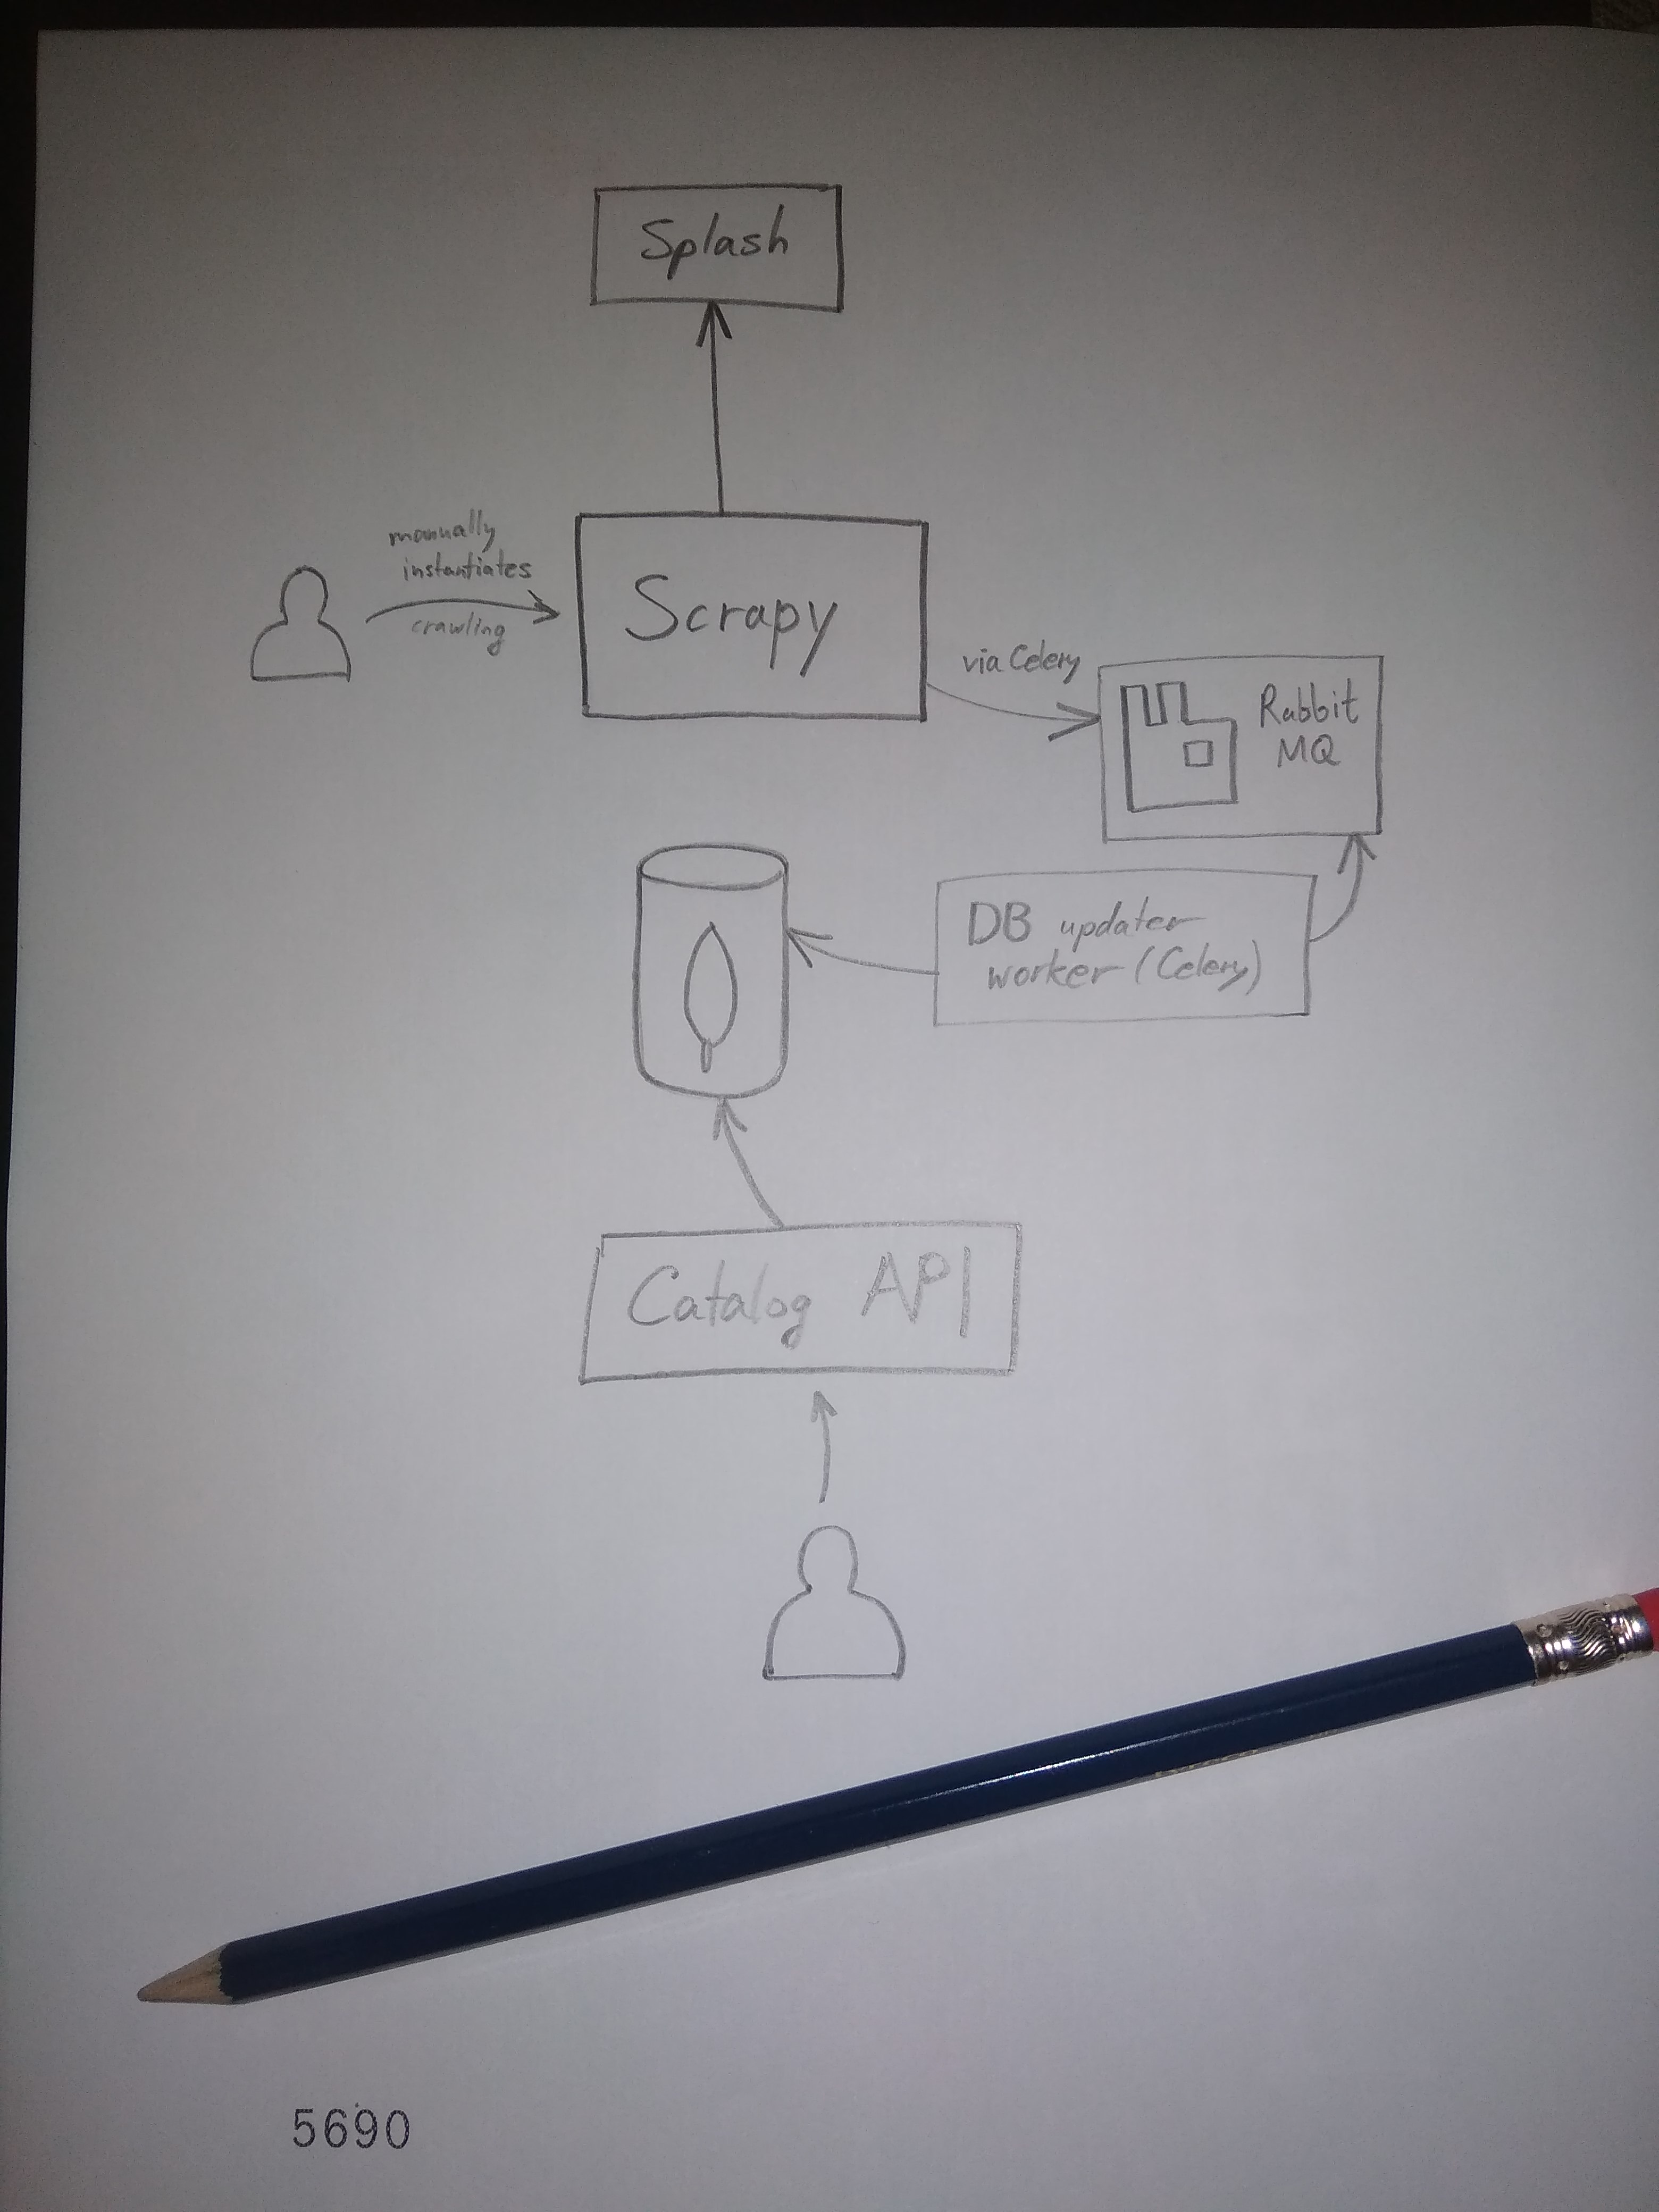 Splash
manually
instantiates
crawling
Scrapy
via Celery
Rabbit
MQ
DB updater
worker (Celery)
Catalog API
5690